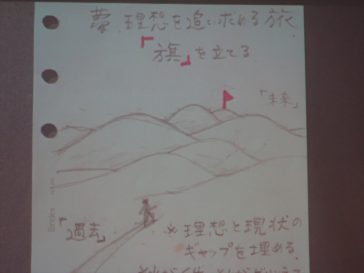 夢、理想を追い求める旅
『旗』を立てる
『未来』
『過去』
※ 理想と現状の
ギャップを埋める